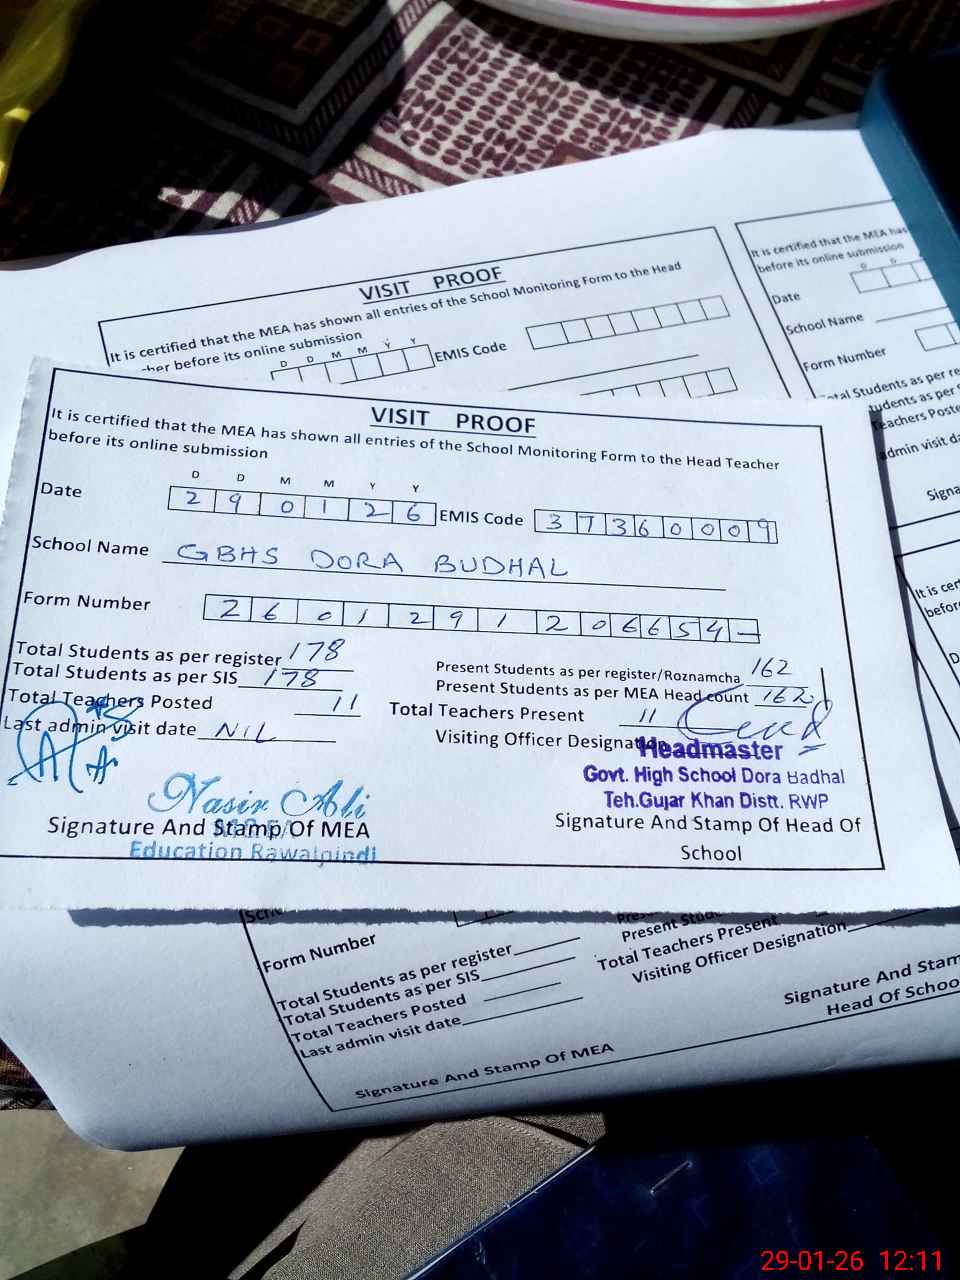 VISIT PROOF
It is certified that the MEA has shown all entries of the School Monitoring Form to the Head
before its online submission
D D M M Y Y
EMIS Code
It is certified that the MEA has
before its online submission
D D
Date
School Name
Form Number
Total Students as per re
Students as per
Teachers Poste
admin visit da
Signa
VISIT PROOF
It is certified that the MEA has shown all entries of the School Monitoring Form to the Head Teacher
before its online submission
D D M M Y Y
Date 290126 EMIS Code 37360009
School Name GBHS DORA BUDHAL
Form Number 2601291206654-
Total Students as per register 178 Present Students as per register/Roznamcha 162
Total Students as per SIS 178 Present Students as per MEA Head count 162
Total Teachers Posted 11 Total Teachers Present 11
Last admin visit date NIL Visiting Officer Designation
Headmaster
Govt. High School Dora Badhal
Teh.Gujar Khan Distt. RWP
Nasir Ali
Signature And Stamp Of MEA
Education Rawalpindi
Signature And Stamp Of Head Of
School
It is cer
befor
Form Number
Total Students as per register
Total Students as per SIS
Total Teachers Posted
Last admin visit date
Present Stud
Total Teachers Present
Visiting Officer Designation
Signature And Stamp Of MEA
Signature And Stam
Head Of Schoo
29-01-26 12:11